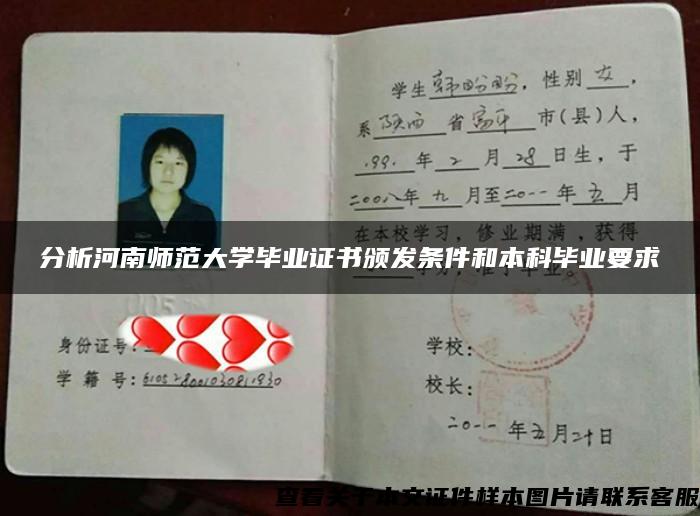 学生韩盼盼，性别女，
系陕西省富平市(县)人，
199.年2月28日生，于
二00八年九月至二0一一年五月
在本校学习，修业期满，获得
分析河南师范大学毕业证书颁发条件和本科毕业要求
身份证号：
学籍号：
学校：
校长：
二0一一年五月二十日
查看关于本文证件样本图片请联系客服